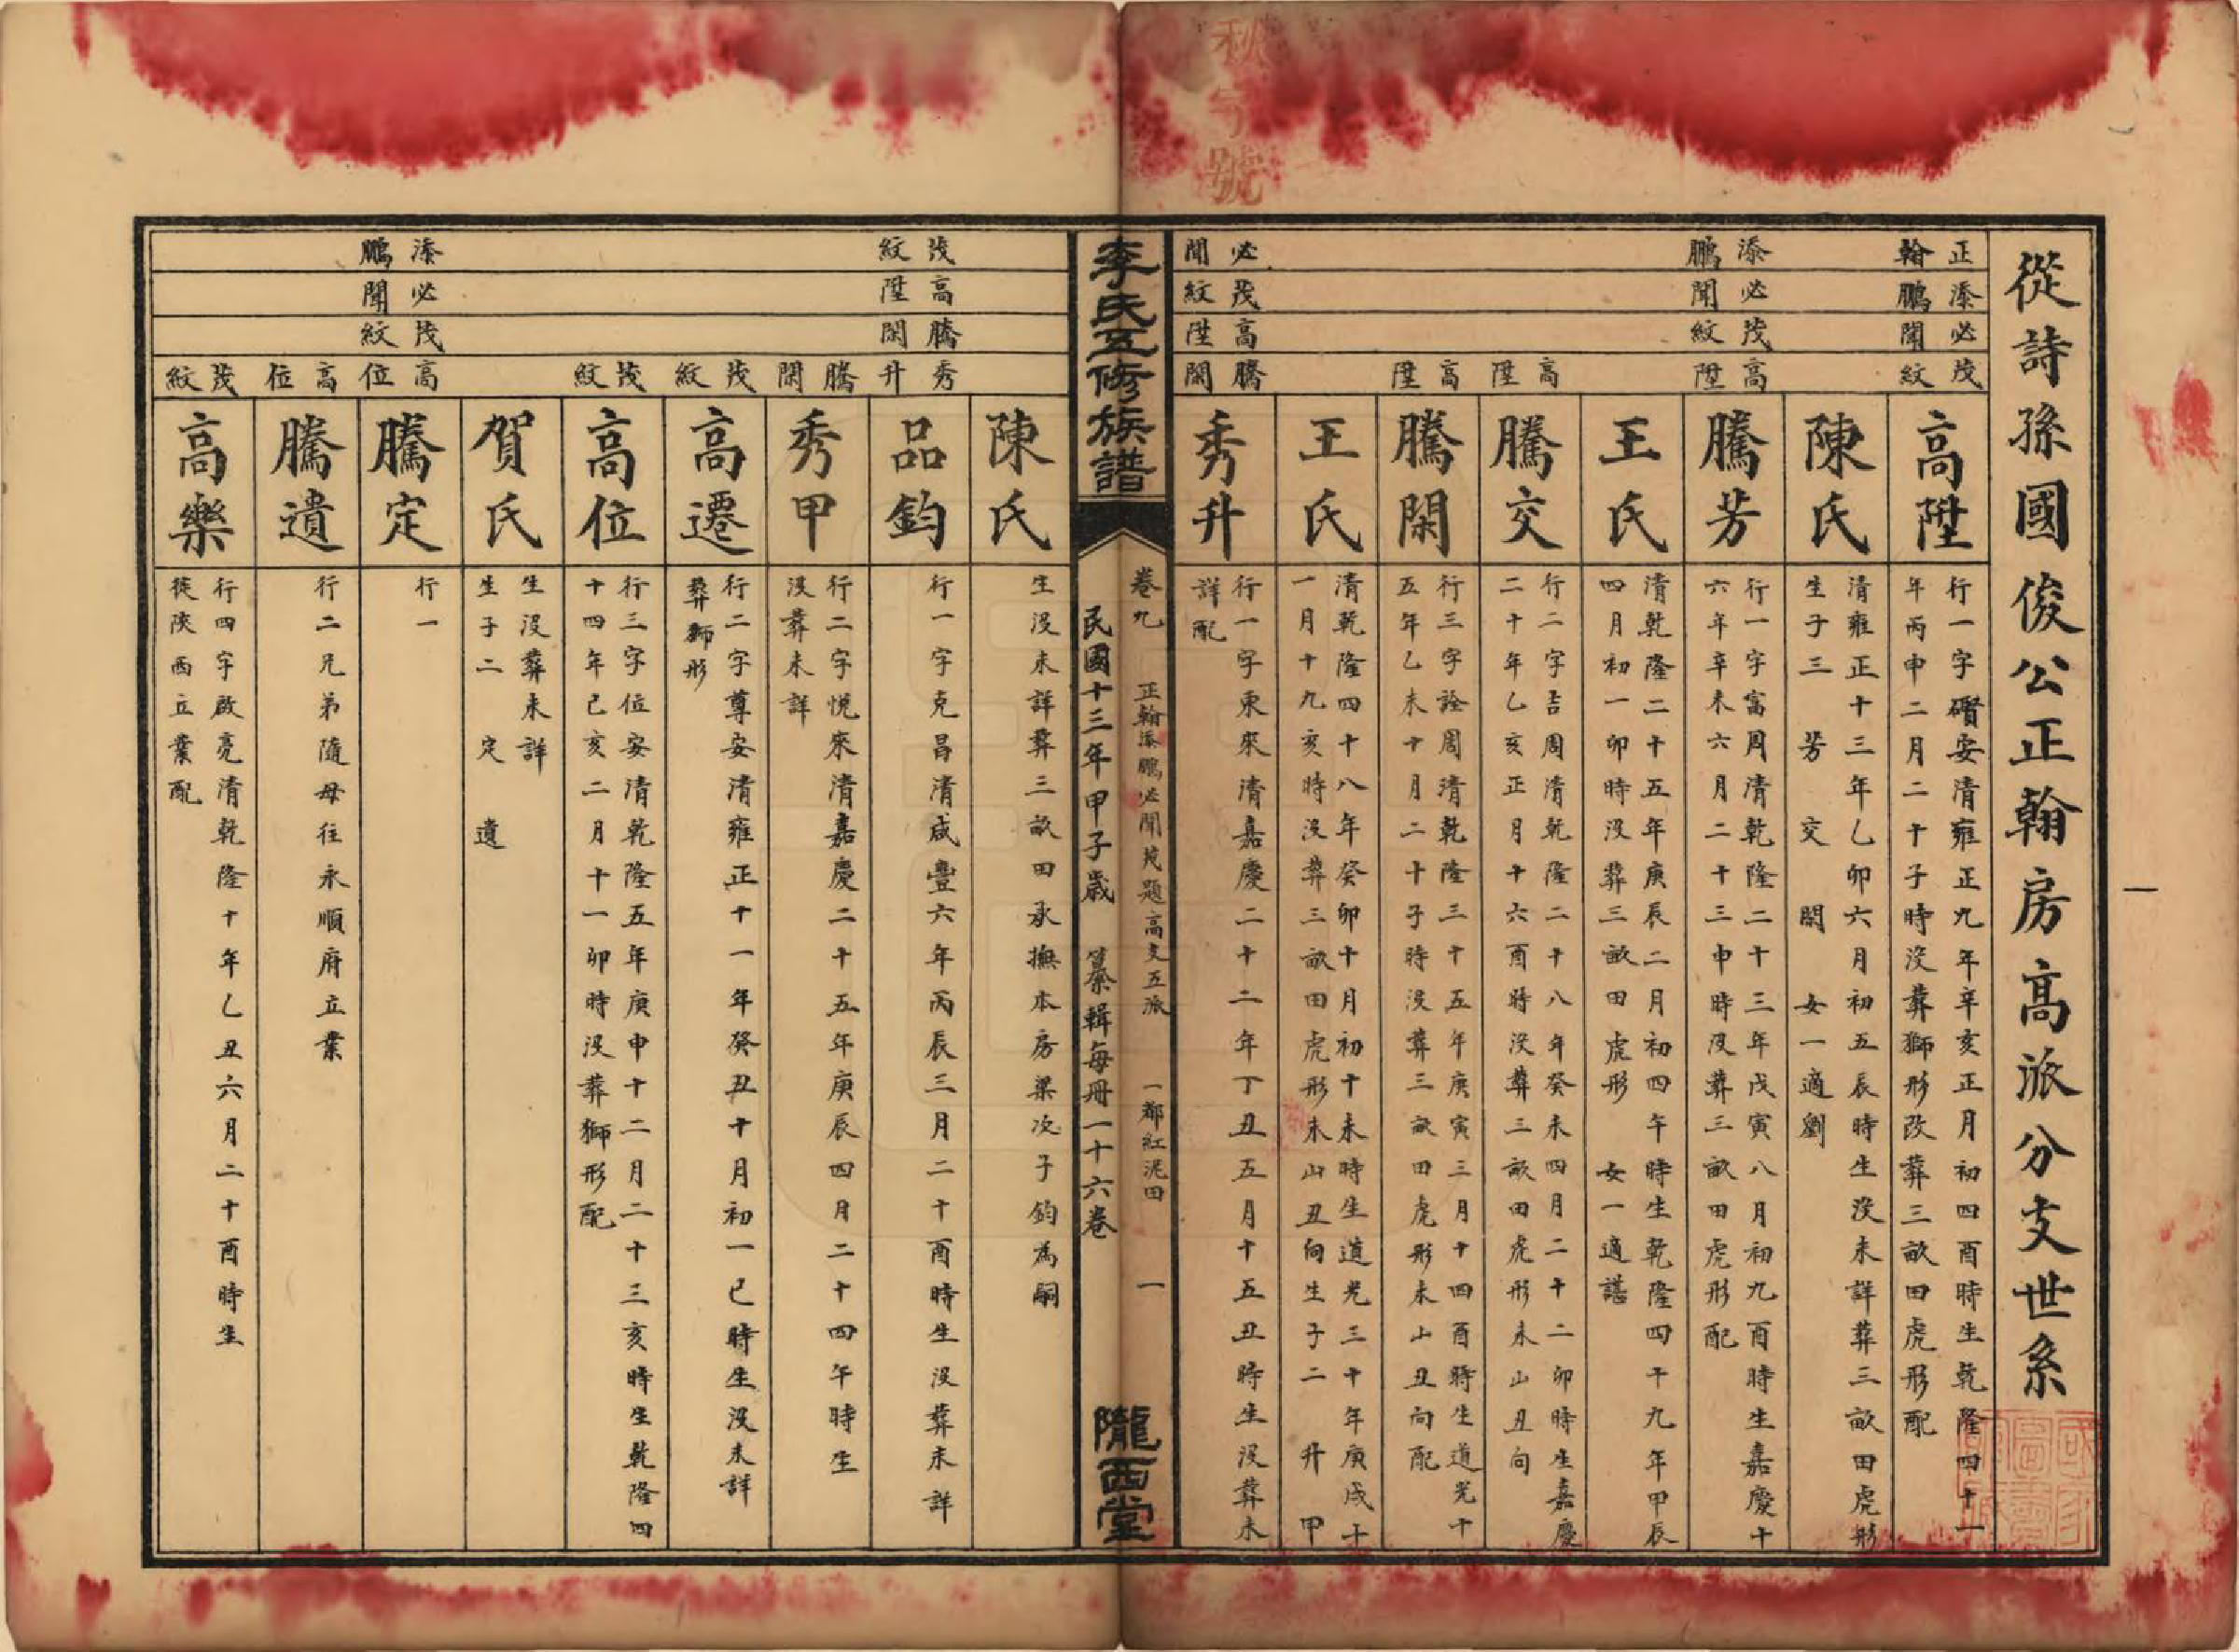 從詩孫國俊公正翰房高派分支世系
正翰
添鵬
必聞
茂紋
高陞
行一字礩安清雍正九年辛亥正月初四酉時生乾隆四十一
年丙申二月二十子時没葬獅形改葬三畝田虎形配
陳氏
清雍正十三年乙卯六月初五辰時生没未詳葬三畝田虎形
生子三 芳 交 閑 女一適劉
添鵬
必聞
茂紋
高陞
騰芳
行一字富周清乾隆二十三年戊寅八月初九酉時生嘉慶十
六年辛未六月二十三申時没葬三畝田虎形配
王氏
清乾隆二十五年庚辰二月初四午時生乾隆四十九年甲辰
四月初一卯時没葬三畝田虎形 女一適諶
高陞
騰交
行二字吉周清乾隆二十八年癸未四月二十二卯時生嘉慶
二十年乙亥正月十六酉時没葬三畝田虎形未山丑向
高陞
騰閑
行三字詮周清乾隆三十五年庚寅三月十四酉時生道光十
五年乙未十月二十子時没葬三畝田虎形未山丑向配
王氏
清乾隆四十八年癸卯十月初十未時生道光三十年庚戌十
一月十九亥時没葬三畝田虎形未山丑向生子二 升 甲
必聞
茂紋
高陞
騰閑
秀升
行一字東來清嘉慶二十二年丁丑五月十五丑時生没葬未
詳配
李氏五修族譜
卷九 正翰添鵬必聞茂題高支五派 一都紅泥田 一
民國十三年甲子歲 纂輯每冊一十六卷
隴西堂
陳氏
生没未詳葬三畝田承撫本房梁次子鈞為嗣
茂紋
高陞
騰閑
秀升
品鈞
行一字克昌清咸豐六年丙辰三月二十酉時生没葬未詳
騰閑
秀甲
行二字悅來清嘉慶二十五年庚辰四月二十四午時生
没葬未詳
茂紋
高遷
行二字尊安清雍正十一年癸丑十月初一巳時生没未詳
葬獅形
茂紋
高位
行三字位安清乾隆五年庚申十二月二十三亥時生乾隆四
十四年己亥二月十一卯時没葬獅形配
賀氏
生没葬未詳
生子二 定 遺
添鵬
必聞
茂紋
高位
騰定
行一
高位
騰遺
行二兄弟隨母往永順府立業
茂紋
高樂
行四字啟亮清乾隆十年乙丑六月二十酉時生
徙陝西立業配
一
秋字號